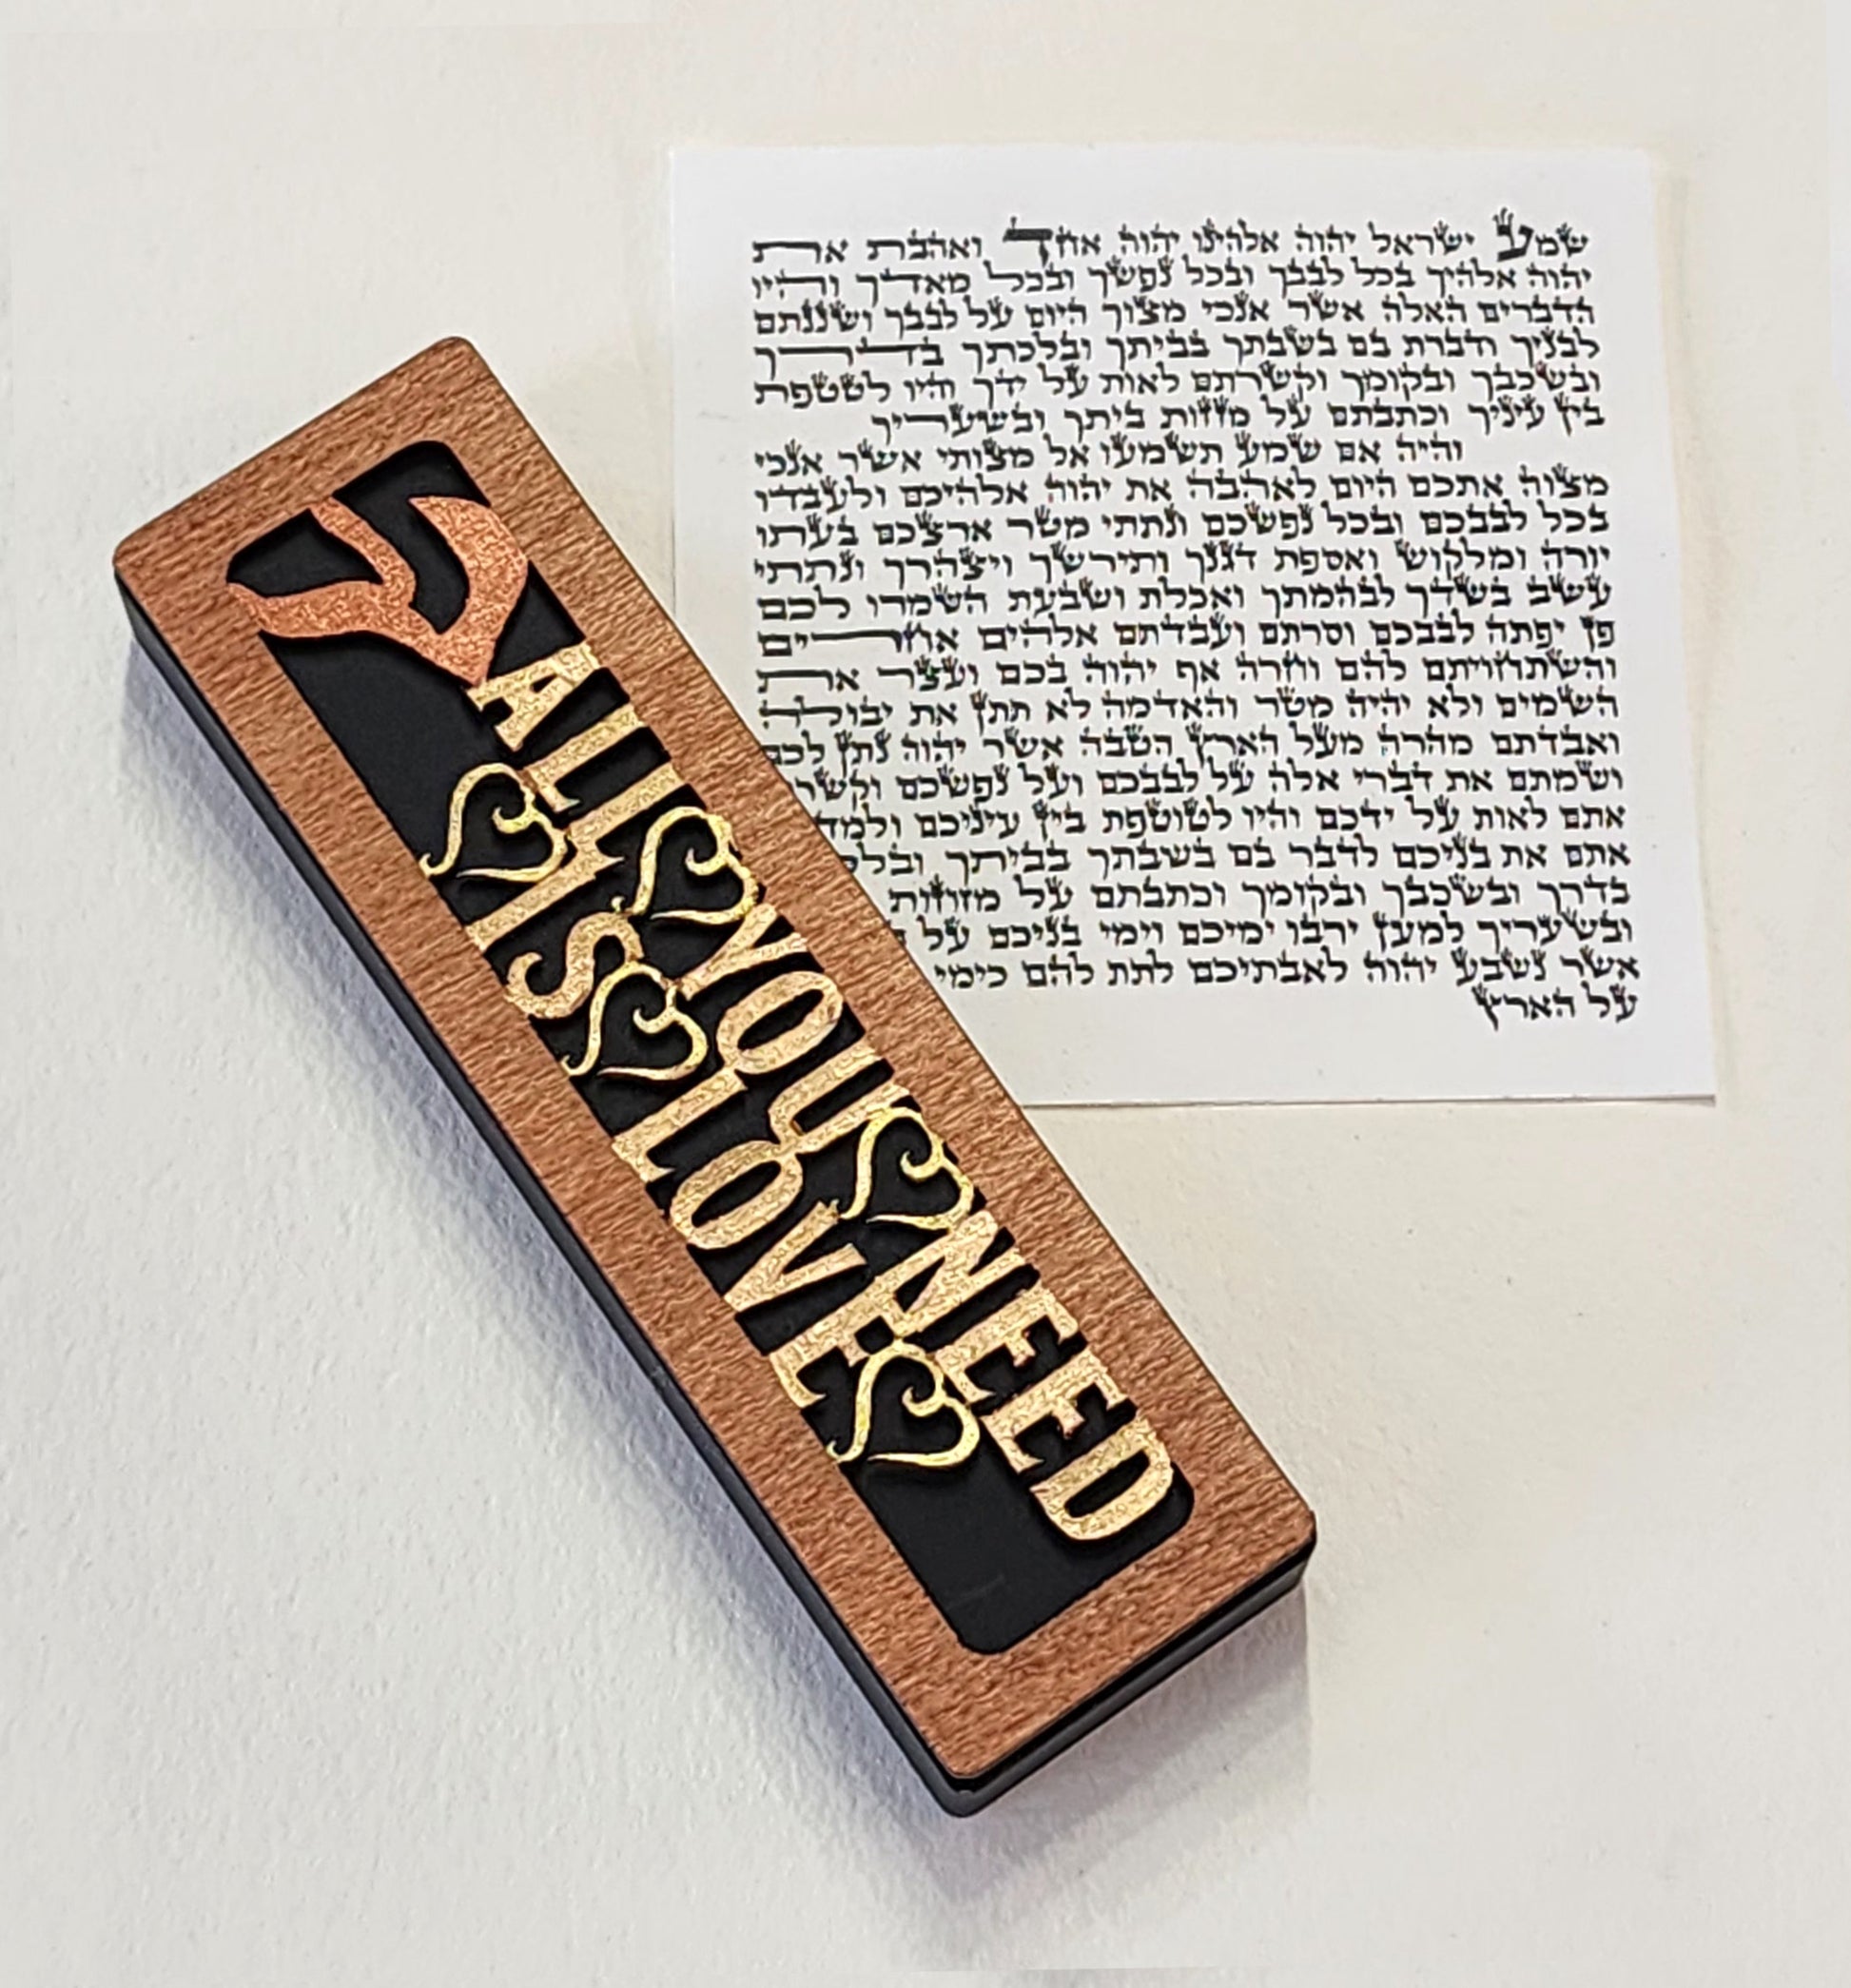 שמע ישראל יהוה אלהינו יהוה אחד ואהבת את
יהוה אלהיך בכל לבבך ובכל נפשך ובכל מאדך והיו
הדברים האלה אשר אנכי מצוך היום על לבבך ושננתם
לבניך ודברת בם בשבתך בביתך ובלכתך בדרך
ובשכבך ובקומך וקשרתם לאות על ידך והיו לטטפת
בין עיניך וכתבתם על מזזות ביתך ובשעריך
והיה אם שמע תשמעו אל מצותי אשר אנכי
מצוה אתכם היום לאהבה את יהוה אלהיכם ולעבדו
בכל לבבכם ובכל נפשכם ונתתי מטר ארצכם בעתו
יורה ומלקוש ואספת דגנך ותירשך ויצהרך ונתתי
עשב בשדך לבהמתך ואכלת ושבעת השמרו לכם
פן יפתה לבבכם וסרתם ועבדתם אלהים אחרים
והשתחויתם להם וחרה אף יהוה בכם ועצר את
השמים ולא יהיה מטר והאדמה לא תתן את יבולה
ואבדתם מהרה מעל הארץ הטבה אשר יהוה נתן לכם
ושמתם את דברי אלה על לבבכם ועל נפשכם וקשר
אתם לאות על ידכם והיו לטוטפת בין עיניכם ולמד
אתם את בניכם לדבר בם בשבתך בביתך ובלכ
בדרך ובשכבך ובקומך וכתבתם על מזוזות
ובשעריך למען ירבו ימיכם וימי בניכם על
אשר נשבע יהוה לאבתיכם לתת להם כימי
על הארץ
ש
ALL YOU NEED
IS LOVE